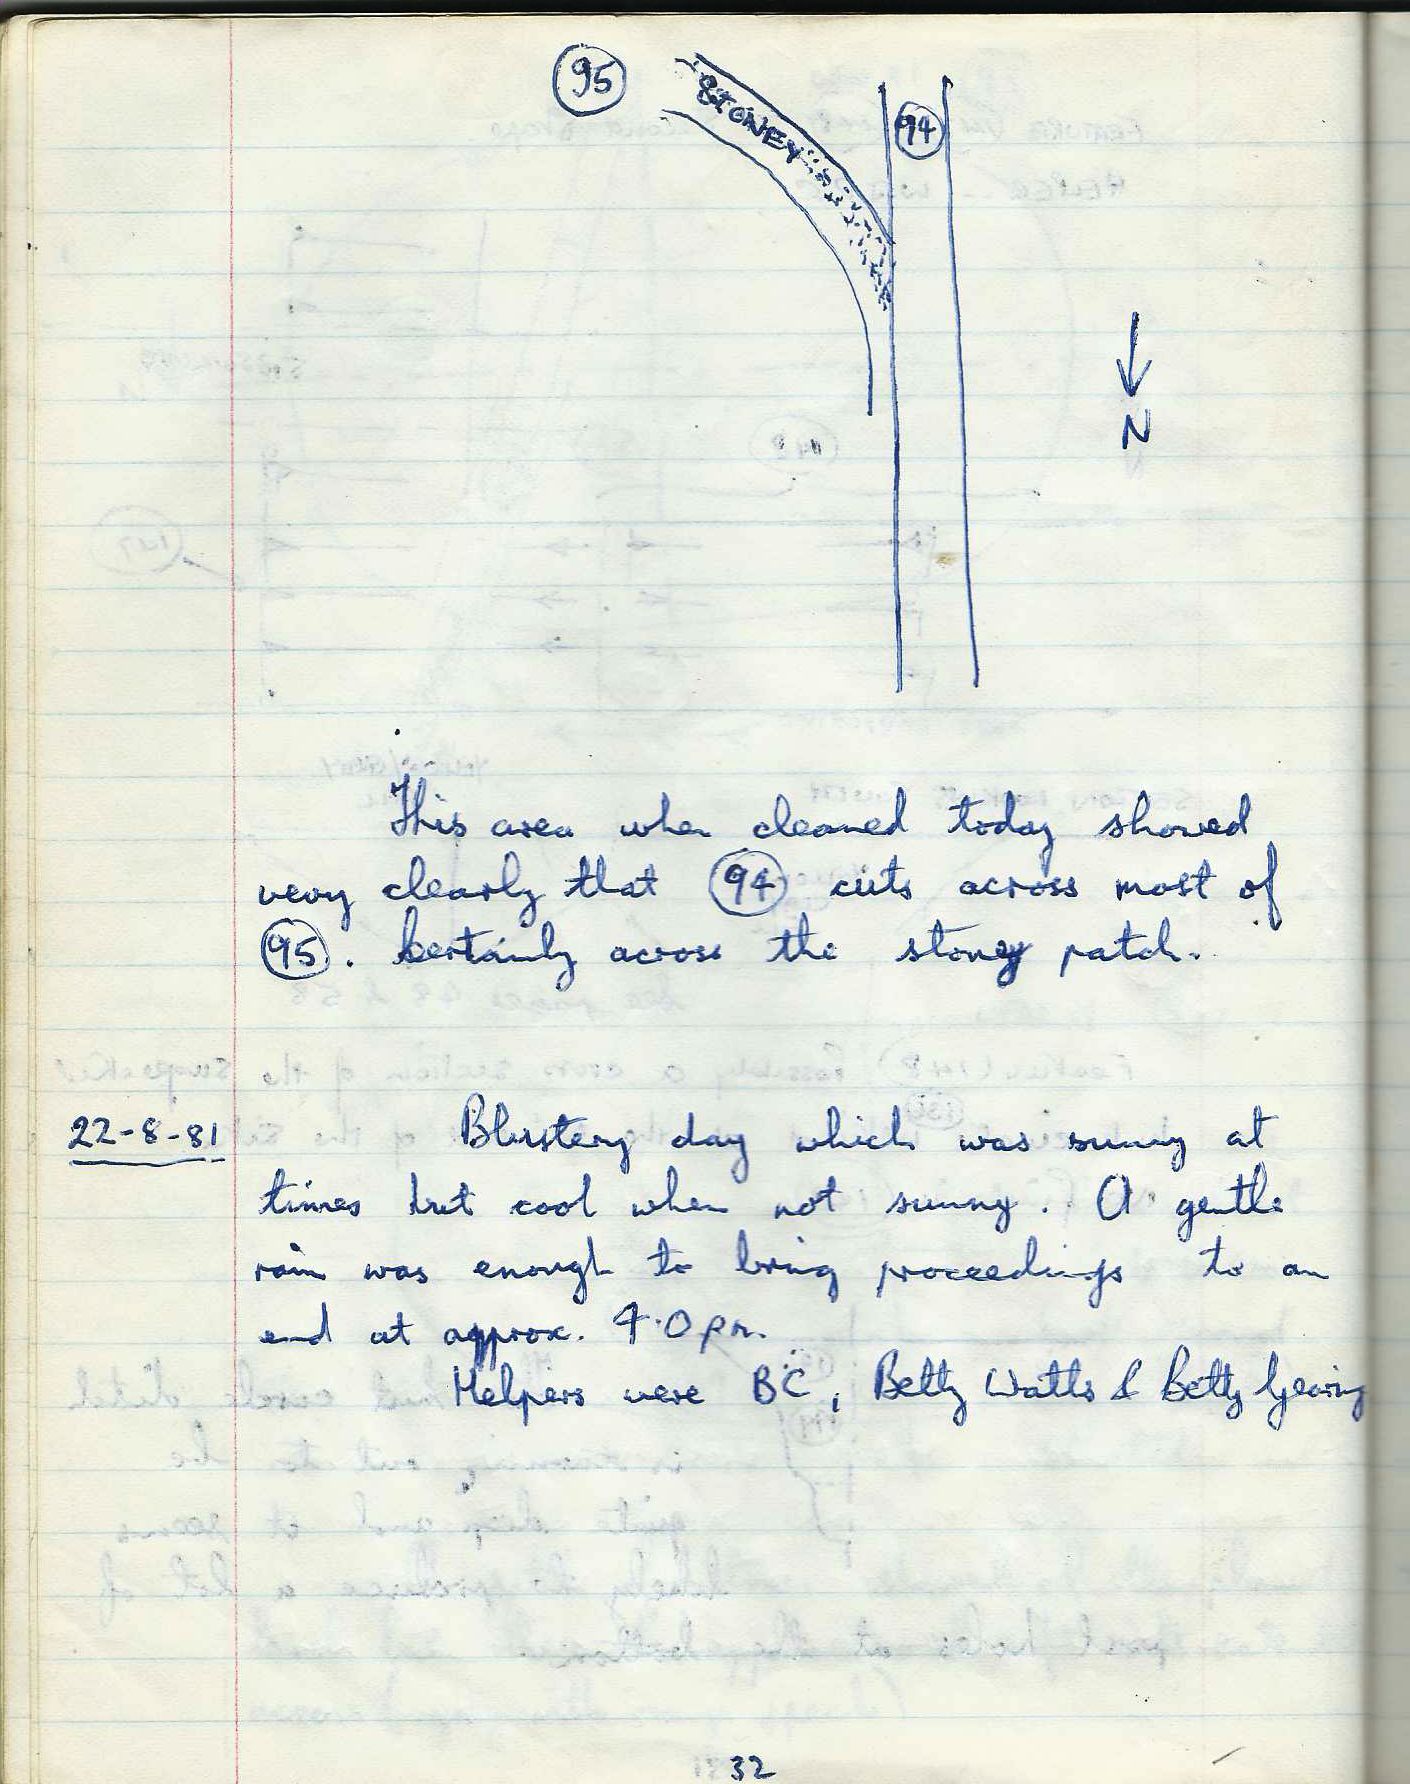 95
STONEY
94
N
This area when cleaned today showed
very clearly that 94 cuts across most of
95. Certainly across the stoney patch.
22-8-81 Blustery day which was sunny at
times but cool when not sunny. A gentle
rain was enough to bring proceedings to an
end at approx. 4.0pm.
Helpers were BC, Betty Watts & Betty Gearing
32